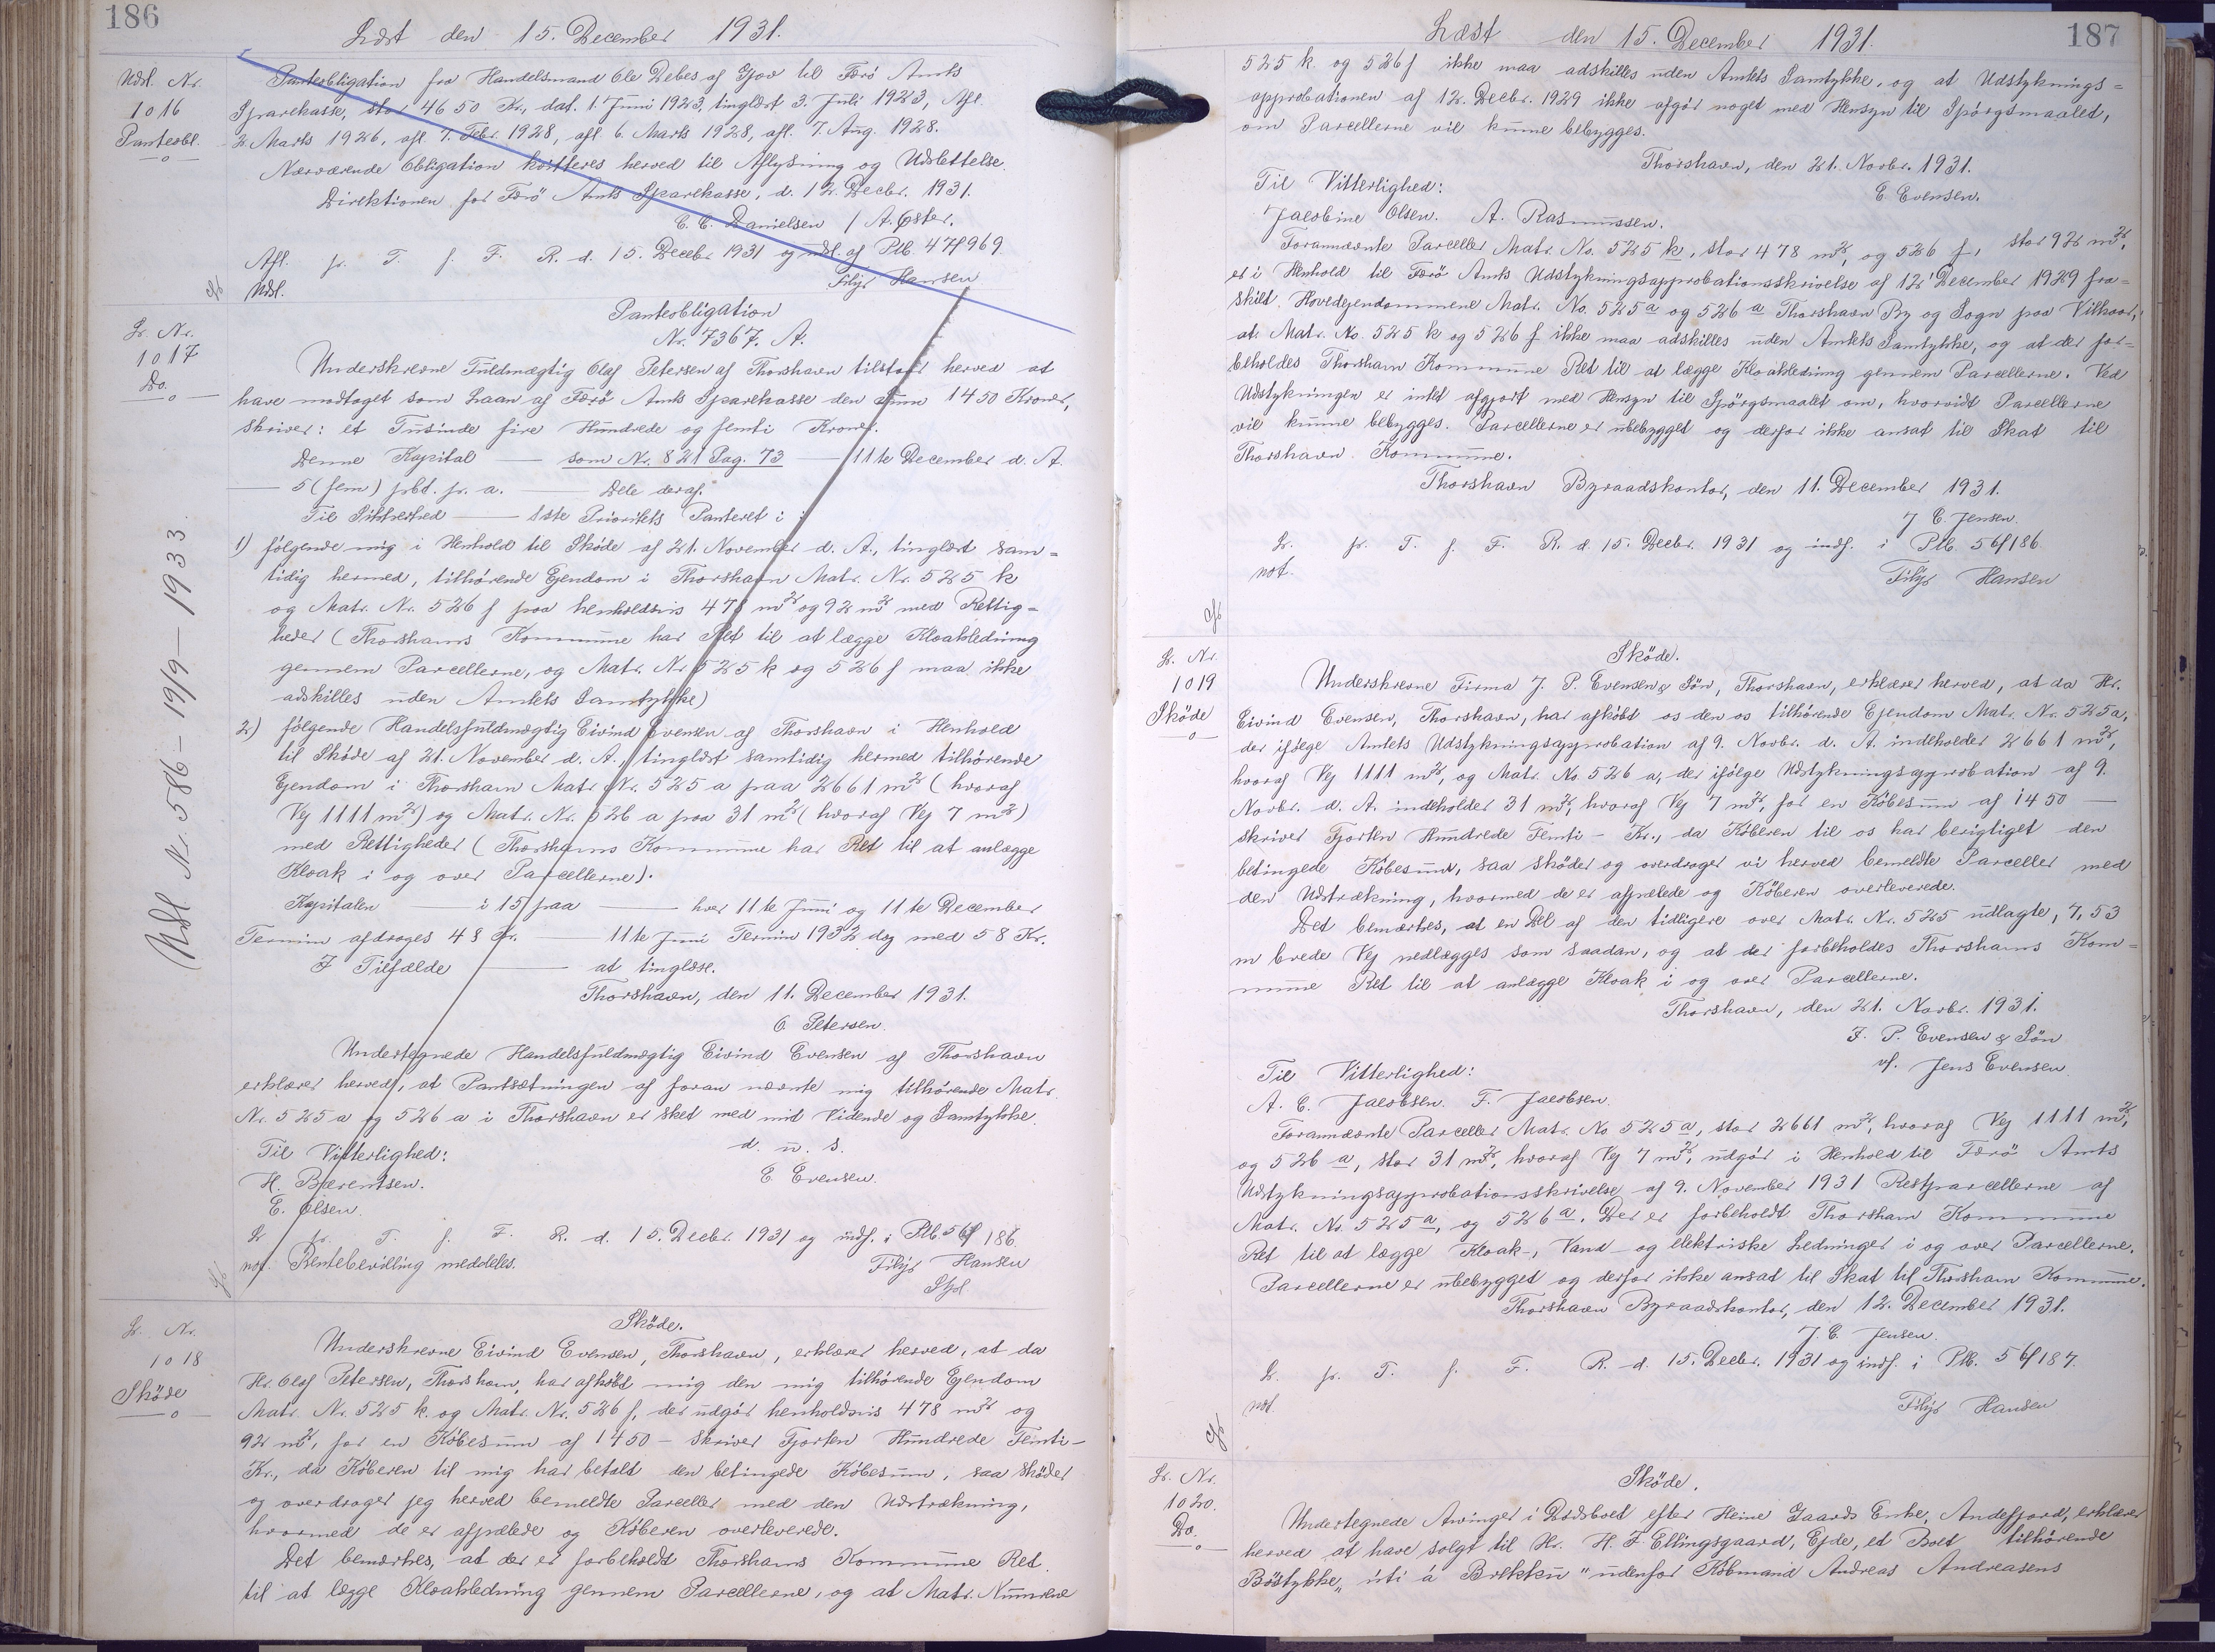 186
Læst den 15. December 1931.
Udsl. Nr.
1016
Panteobl.
Panteobligation fra Handelsmand Ole Debes af Gjov til Færö Amts
Sparekasse, stor 4650 Kr., dat. 1. Juni 1923, tinglæst 3. Juli 1923, Afl.
2 Marts 1926, afl. 7. Febr. 1928, afl. 6. Marts 1928, afl. 7. Aug. 1928.
Nærværende Obligation kvitteres herved til Aflysning og Udslettelse.
Direktionen for Færö Amts Sparekasse, d. 12. Decbr. 1931.
C. C. Danielsen / A. Øster.
Afl. pr. T. f. F. R. d. 15. Decbr 1931 og udsl. af Ptb. 47f969.
Udsl. Filip Hansen
L. Nr.
1017
Do.
Panteobligation
Nr. 7367. A.
Underskrevne Fuldmægtig Olaf Petersen af Thorshavn tilstaar herved at
have modtaget som Laan af Færö Amts Sparekasse den Sum 1450 Kroner,
skriver: et Tusinde fire Hundrede og femti Kroner.
Denne Kapital — som Nr. 821 Pag. 73 — 11te December d. A.
— 5 (fem) pCt. p. a. — Dele deraf.
Til Sikkerhed — 1ste Prioritets Panteret i:
1) følgende mig i Henhold til Sköde af 21. November d. A., tinglæst sam=
tidig hermed, tilhörende Ejendom i Thorshavn Matr. Nr. 525 k
og Matr. Nr. 526 f paa henholdsvis 478 m² og 92 m² med Rettig=
heder (Thorshavns Kommune har Ret til at lægge Kloakledning
gennem Parcellerne, og Matr. Nr 525 k og 526 f maa ikke
adskilles uden Amtets Samtykke)
2) følgende Handelsfuldmægtig Eivind Evensen af Thorshavn i Henhold
til Sköde af 21. November d. A., tinglæst samtidig hermed tilhörende
Ejendom i Thorshavn Matr. Nr. 525 a paa 2661 m² (hvoraf
Vej 1111 m²) og Matr. Nr. 526 a paa 31 m² (hvoraf Vej 7 m²)
med Rettigheder (Thorshavns Kommune har Ret til at anlægge
Kloak i og over Parcellerne).
Kapitalen — i 15 paa — hver 11te Juni og 11te December
Termin afdrages 48 Kr. — 11te Juni Termin 1932 dog med 58 Kr.
I Tilfælde — at tinglæse.
Thorshavn, den 11. December 1931.
O. Petersen.
Undertegnede Handelsfuldmægtig Eivind Evensen af Thorshavn
erklærer herved, at Pantsætningen af foran nævnte mig tilhörende Matr.
Nr. 525 a og 526 a i Thorshavn er sket med mid Vidende og Samtykke.
Til Vitterlighed: d. u. s.
H. Bærentsen. E. Evensen.
E. Olsen.
L pr. T. f. F. R. d. 15. Decbr. 1931 og indf. i Ptb. 56f 186.
not. Rentebevilling meddeles. Filip Hansen
Udsl Nr. 586 - 19/9 - 1933.
L. Nr.
1018
Sköde
Sköde.
Underskrevne Eivind Evensen, Thorshavn, erklærer herved, at da
Hr. Olaf Petersen, Thorshavn, har afköbt mig den mig tilhörende Ejendom
Matr. Nr. 525 k. og Matr. Nr. 526 f, der udgör henholdsvis 478 m² og
92 m², for en Köbesum af 1450 - skriver Fjorten Hundrede Femti -
Kr., da Köberen til mig har betalt den betingede Köbesum, saa sköder
og overdrager jeg herved bemeldte Parceller med den Udstrækning,
hvormed de er afpælede og Köberen overleverede.
Det bemærkes, at der er forbeholdt Thorshavns Kommune Ret
til at lægge Kloakledning gennem Parcellerne, og at Matr. Numrene
187
Læst den 15. December 1931.
525 k. og 526 f ikke maa adskilles uden Amtets Samtykke, og at Udstyknings=
approbationen af 12. Decbr. 1929 ikke afgör noget med Hensyn til Spörgsmaalet,
om Parcellerne vil kunne bebygges.
Thorshavn, den 21. Novbr. 1931.
Til Vitterlighed: E. Evensen.
Jacobine Olsen. A. Rasmussen.
Forannævnte Parceller Matr. No. 525 k, stor 478 m², og 526 f, stor 92 m²,
er i Henhold til Færö Amts Udstykningsapprobationsskrivelse af 12' December 1929 fra=
skilt Hovedejendommene Matr. No. 525 a og 526 a Thorshavn By og Sogn paa Vilkaar,
at Matr. No. 525 k og 526 f ikke maa adskilles uden Amtets Samtykke, og at der for=
beholdes Thorshavn Kommune Ret til at lægge Kloakledning gennem Parcellerne. Ved
Udstykningen er intet afgjort med Hensyn til Spörgsmaalet om, hvorvidt Parcellerne
vil kunne bebygges. Parcellerne er ubebygget og derfor ikke ansat til Skat til
Thorshavn Kommune.
Thorshavn Byraadskontor, den 11. December 1931.
J C. Jensen.
L. pr. T. f. F. R. d. 15. Decbr. 1931 og indf. i Ptb. 56f186.
not. Filip Hansen
L. Nr.
1019
Sköde
Sköde.
Underskrevne Firma J. P. Evensen & Sön, Thorshavn, erklærer herved, at da Hr.
Eivind Evensen, Thorshavn, har afköbt os den os tilhörende Ejendom Matr. Nr. 525a,
der ifölge Amtets Udstykningsapprobation af 9. Novbr. d. A. indeholder 2661 m²,
hvoraf Vej 1111 m², og Matr. No. 526 a, der ifölge Udstykningsapprobation af 9.
Novbr. d. A. indeholder 31 m², hvoraf Vej 7 m², for en Köbesum af 1450 —
skriver Fjorten Hundrede Femti - Kr., da Köberen til os har berigtiget den
betingede Köbesum, saa sköder og overdrager vi herved bemeldte Parceller med
den Udstrækning, hvormed de er afpælede og Köberen overleverede.
Det bemærkes, at en Del af den tidligere over Matr. Nr. 525 udlagte, 7,53
m brede Vej nedlægges som saadan, og at der forbeholdes Thorshavns Kom=
mune Ret til at anlægge Kloak i og over Parcellerne.
Thorshavn, den 21. Novbr. 1931.
J. P. Evensen & Sön
Til Vitterlighed: v/. Jens Evensen.
A. C. Jacobsen. F. Jacobsen.
Forannævnte Parceller Matr. No 525 a, stor 2661 m², hvoraf Vej 1111 m²,
og 526 a, stor 31 m², hvoraf Vej 7 m², udgör i Henhold til Færö Amts
Udstykningsapprobationsskrivelse af 9. November 1931 Restparcellerne af
Matr. Nr. 525 a, og 526 a. Der er forbeholdt Thorshavn Kommune
Ret til at lægge Kloak-, Vand- og elektriske Ledninger i og over Parcellerne.
Parcellerne er ubebygget og derfor ikke ansat til Skat til Thorshavn Kommune.
Thorshavn Byraadskontor, den 12. December 1931.
J. C. Jensen.
L. pr. T. f. F. R. d. 15. Decbr. 1931 og indf. i Ptb. 56f187.
not. Filip Hansen
L. Nr.
1020.
Do.
Sköde.
Undertegnede Arvinger i Dödsboet efter Heine Gaards Enke, Andefjord, erklærer
herved at have solgt til Hr. H. F. Ellingsgaard, Ejde, et Boet tilhörende
Böstykke „úti á Brekku" udenfor Köbmand Andreas Andreasens